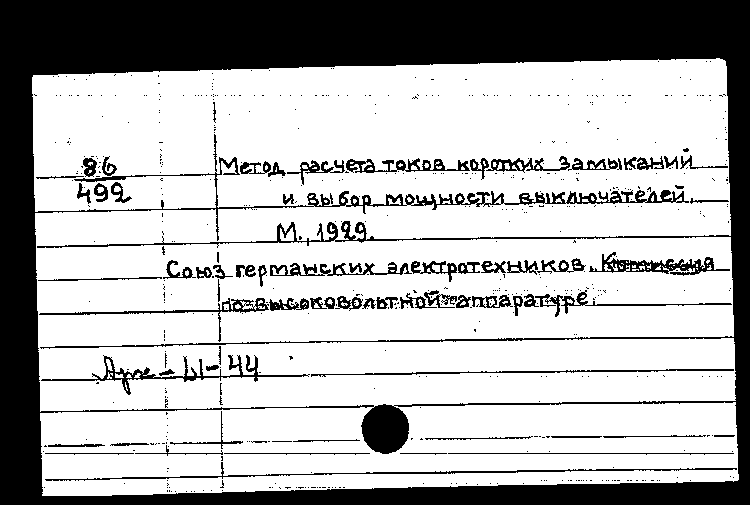 86
492
Метод расчета токов коротких замыканий
и выбор мощности выключателей.
М., 1929.
Союз германских электротехников. Комиссия
по высоковольтной аппаратуре.
44